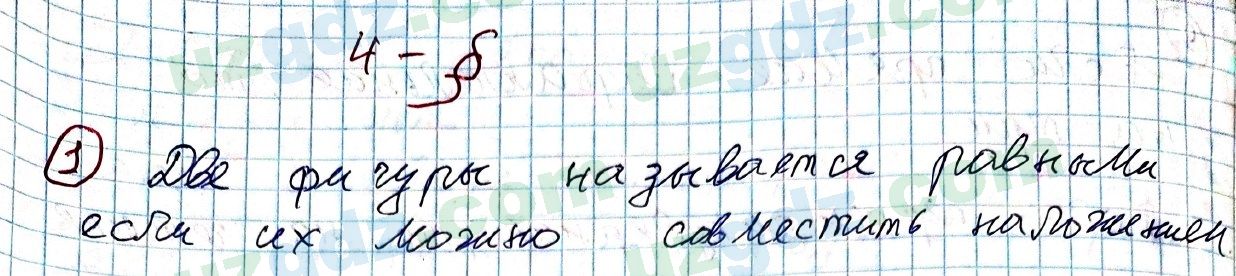 4 - §
1 Две фигуры называется равными
если их можно совместить наложением